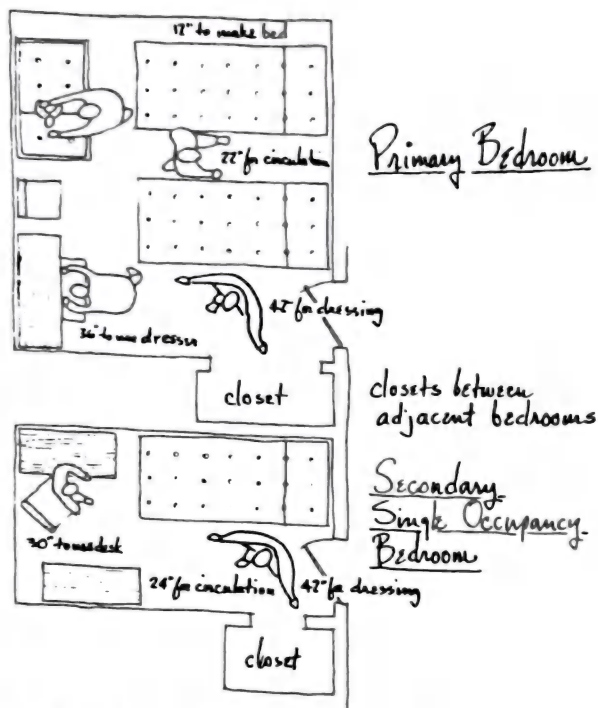 12" to make bed
22" for circulation
Primary Bedroom
42" for dressing
36" to use dresser
closet
closets between
adjacent bedrooms
Secondary
Single Occupancy
Bedroom
30" to use desk
24" for circulation
42" for dressing
closet